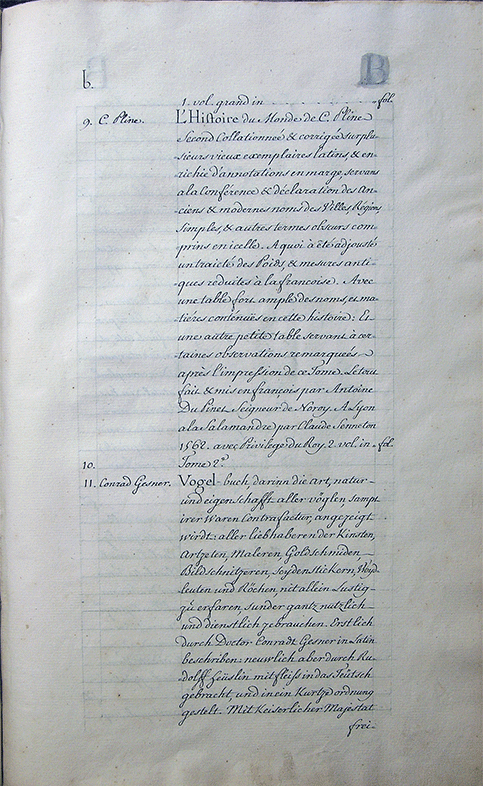 b.
B
1. vol. grand in - - - - - - - fol.
9. C. Pline. L'Histoire du Monde de C. Pline
Second Collationnée & corrigée sur plu-
sieurs vieux exemplaires latins, & en-
richie d'annotations en marge, servans
a la Conférence & déclaration des An-
ciens & modernes noms des Villes, Régions
Simples, & autres termes obscurs com-
prins en icelle. A quoi à été adjousté
un traicté des Poids, & mesures anti-
ques reduites à la francoise. Avec
une table fort ample des noms, et ma-
tières contenues en cette histoire: Et
une autre petite table servant à cer-
taines observations remarquées
après l'impression de ce Tome. Le tou
fait & mis en françois par Antoine
Du Pinet Seigneur de Noroy. A Lyon
a la Salamandre par Claude Senneton
1562. avec Privilege du Roy. 2. vol. in - fol.
10. Tome 2.e
11. Conrad Gesner. Vogel-buch, darinn die art, natur
und eigenschafft aller vöglen, sampt
irer waren Contrafactur, angezeigt
wirdt: aller liebhaberen der Kinsten,
Artzeten, Maleren, Goldschmiden,
Bildschnitzeren, Seydenstickern, Weyd-
leuten und Köchen, nit allein Lustig
zü erfaren, sunder gantz nutzlich
und dienstlich ze brauchen. Erstlich
durch Doctor Conradt Gesner in Latin
beschriben: neuwlich aber durch Ru-
dolff Feüslin mit fleiss in das Teütsch
gebracht, und in ein Kurtze ordnung
gestelt. Mit Keiserlicher Majestat
frei-